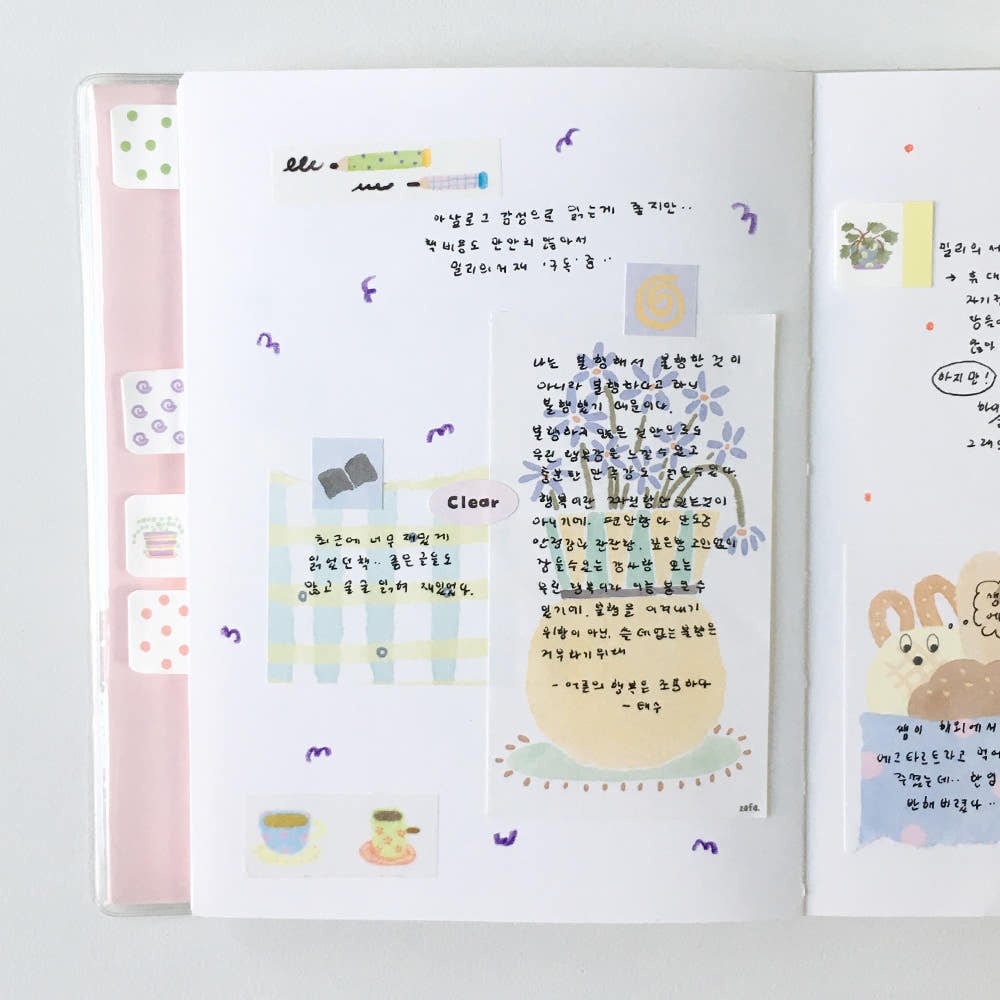 아날로그 감성으로 읽는게 좋지만..
책 비용도 만만치 않아서
밀리의 서재 '구독' 중..
나는 불행해서 불행한 것이
아니라 불행하다고 하니
불행했기 때문이다.
불행하지 않은 것만으로도
우린 행복감을 느낄 수 있고
충분한 만족감도 얻을 수 있다.
행복이란 짜릿함만 있는 것이
아니기에. 편안함과 안도감
안정감과 잔잔함. 깊은
잠들 수 있는 감사함 또는
우린 행복이라 이름 붙일 수
있기에. 불행을 이겨내기
위함이 아닌, 쓸데없는 불행은
거부하기 위해
- 어른의 행복은 조용하다
- 태수
zofo.
Clear
최근에 너무 재밌게
읽었던 책.. 좋은 글들도
많고 술술 읽혀 재밌었다.
밀리의 서
→ 휴대
자기전
많음에
않아
하지만!
그래도
생
에
쌤이 해외에서
에그타르트라고 먹어
주셨는데.. 한입
반해버렸다..